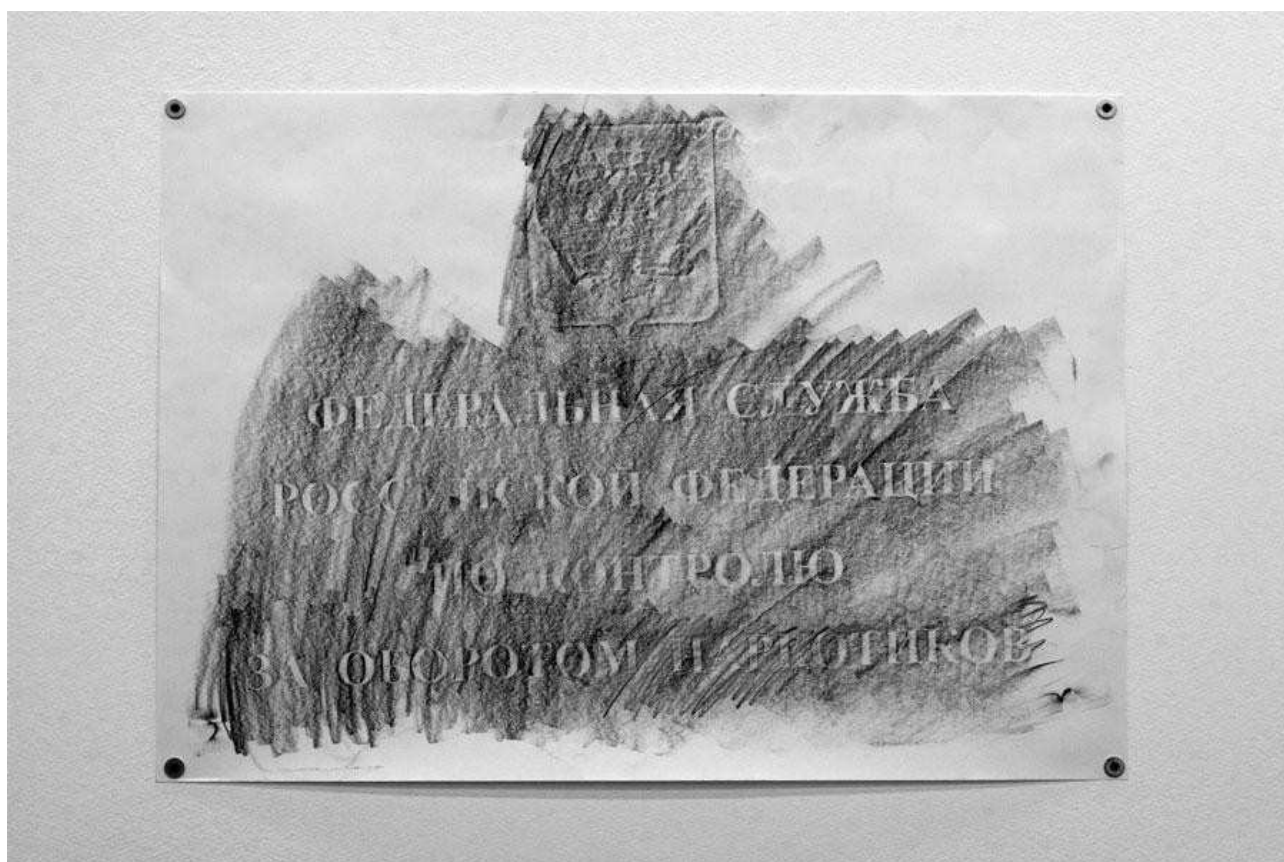 ФЕДЕРАЛЬНАЯ СЛУЖБА
РОССИЙСКОЙ ФЕДЕРАЦИИ
ПО КОНТРОЛЮ
ЗА ОБОРОТОМ НАРКОТИКОВ